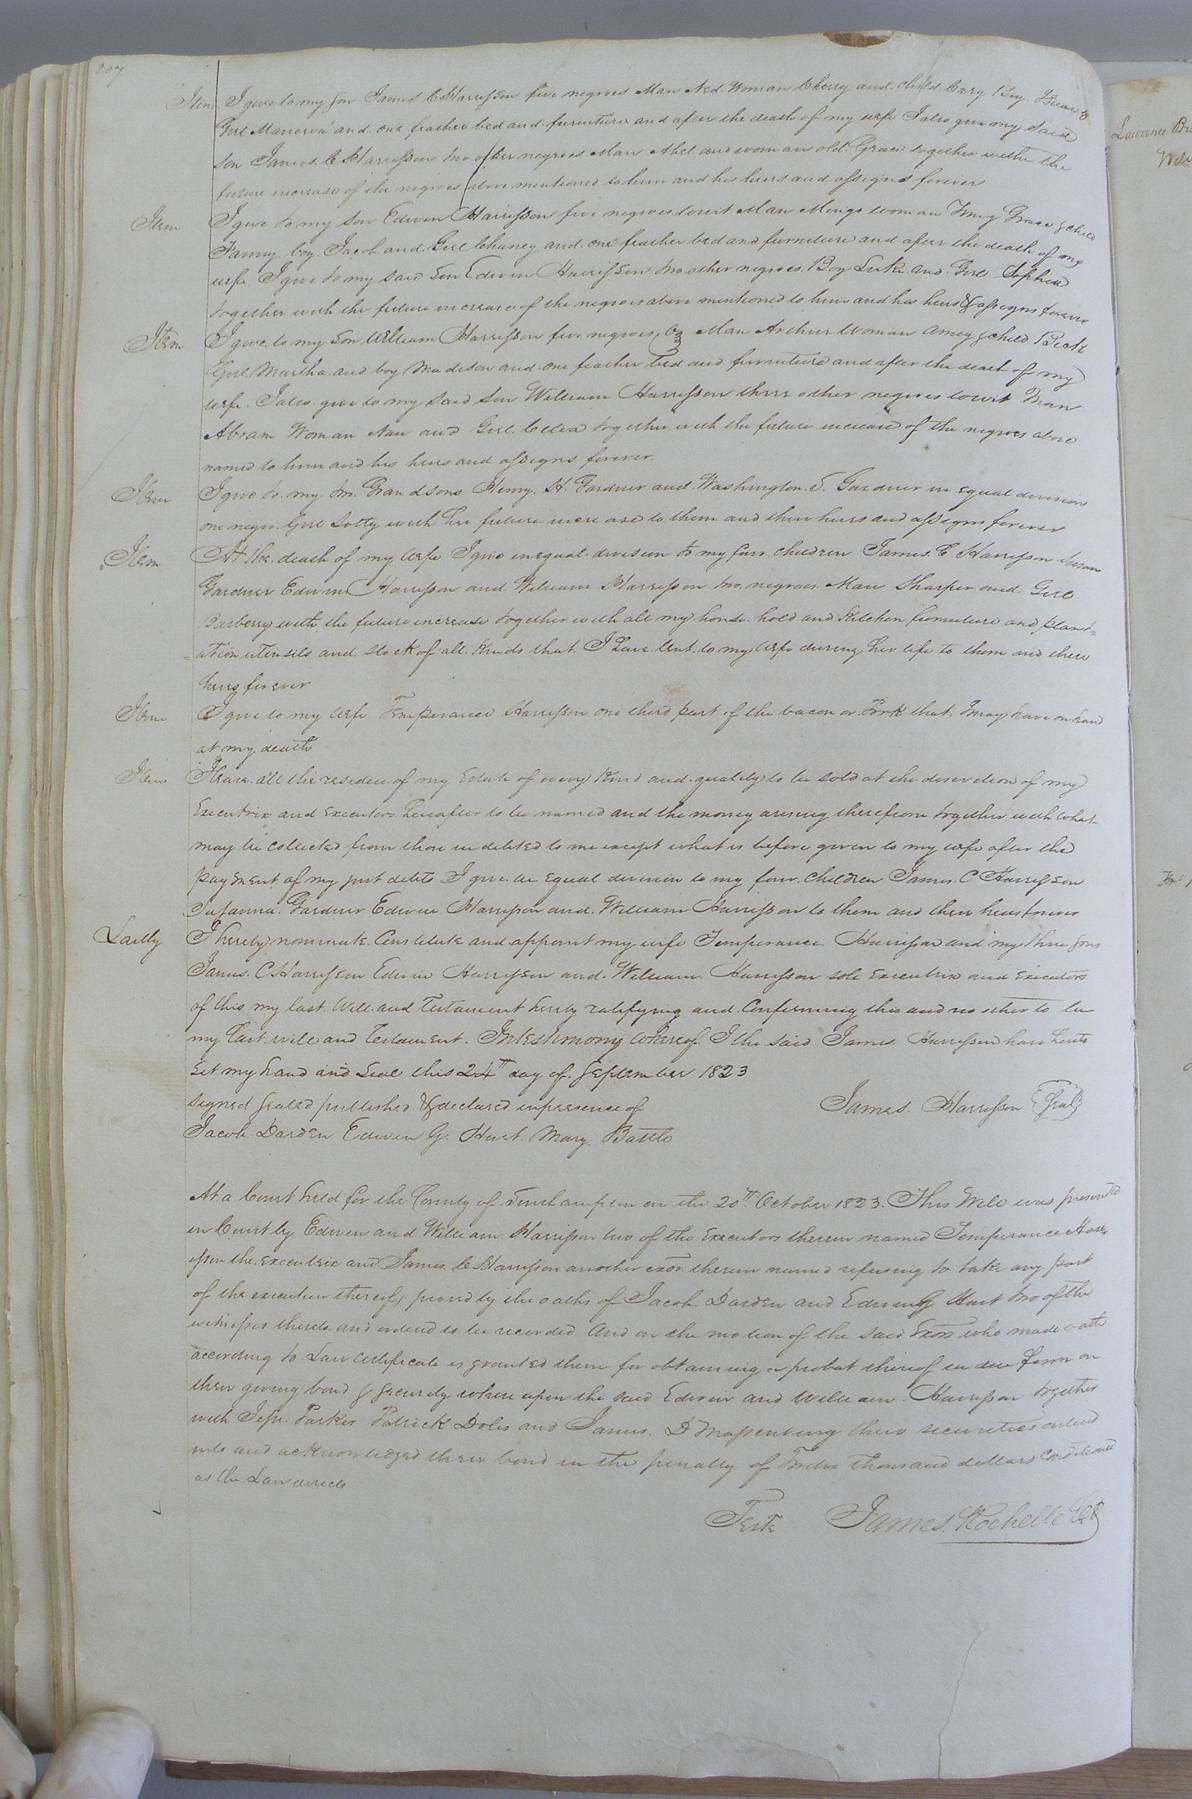 207
Item I give to my son James C Harrisson five negroes Man Ned Woman Cherry and child Cary Boy Isaac &
Girl Manerva and one feather bed and furniture and after the death of my wife I also give my said
son James C Harrisson two other negroes Man Abel and woman old Grace together with the
future increase of the negroes above mentioned to him and his heirs and assigns forever
Item I give to my son Edwin Harrisson five negroes towit Man Mingo woman Grace & child
Fanny boy Jacob and Girl Chaney and one feather bed and furniture and after the death of my
wife I give to my said son Edwin Harrisson two other negroes Boy Luke and Girl Sophia
together with the future increase of the negroes above mentioned to him and his heirs & assigns forever
Item I give to my son William Harrisson five negroes, Man Arthur Woman Amey & child Beck
Girl Martha and boy Madison and one feather bed and furniture and after the death of my
wife I also give to my said son William Harrisson three other negroes towit Man
Abram Woman Nan and Girl Clea together with the future increase of the negroes above
named to him and his heirs and assigns forever.
Item I give to my two Grandsons Henry H Gardner and Washington S. Gardner in equal division
one negro Girl Lotty with her future increase to them and their heirs and assigns forever
Item At the death of my wife I give in equal division to my four children James C Harrisson Susan
Gardner Edwin Harrisson and William Harrisson two negroes Man Sharper and Girl
Barberry with the future increase together with all my house hold and Kitchen furniture and plant=
=ation utensils and stock of all kinds that I have lent to my wife during her life to them and their
heirs forever
Item I give to my wife Temperance Harrisson one third part of the bacon or Pork that I may have on hand
at my death
Item I leave all the residue of my Estate of every kind and quality to be sold at the discretion of my
Executrix and Executors hereafter to be named and the money arising therefrom together with what
may be collected from those indebted to me except what is before given to my wife after the
payment of my just debts I give in equal division to my four children James C Harrisson
Susanna Gardner Edwin Harrisson and William Harrisson to them and their heirs forever
Lastly I hereby nominate Constitute and appoint my wife Temperance Harrisson and my three sons
James C Harrisson Edwin Harrisson and William Harrisson sole Executrix and Executors
of this my last Will and Testament hereby ratifying and Confirming this and no other to be
my last will and Testament. In testimony whereof I the said James Harrisson have hereto
set my hand and seal this 24th day of September 1823
Signed sealed published & declared in presence of James Harrisson {Seal}
Jacob Darden Edwin G. Hart Mary Battle
At a Court held for the County of Southampton on the 20th October 1823. This Will was presented
in Court by Edwin and William Harrisson two of the executors therein named Temperance Harr
isson the executrix and James C Harrisson another exor therein named refusing to take any part
of the execution thereof, proved by the oaths of Jacob Darden and Edwin G Hart two of the
witnesses thereto and ordered to be recorded And on the motion of the said Exors who made oath
according to Law certificate is granted them for obtaining a probat thereof in due form on
their giving bond & security where upon the said Edwin and William Harrisson together
with Jesse Parker Patrick Doles and James D Massenburg their securities entered
into and acknowledged their bond in the penalty of Twelve thousand dollars conditioned
as the Law directs
Teste James Rochelle Clk
Lawrence